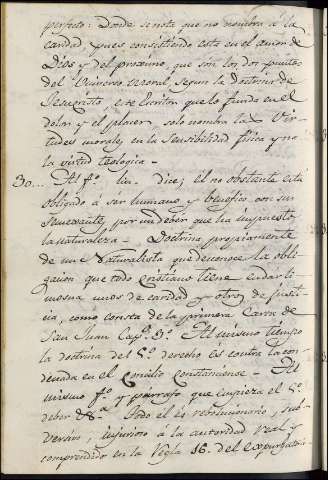 perfecto: Donde se nota que no nombra á la
caridad, pues consistiendo esta en el amor de
Dios y del proximo, que son los dos puntos
del Universo moral, segun la Doctrina de
Jesucristo, este Escritor que lo funda en el
dolor y el placer solo nombra las Vir-
tudes morales, en la Sensibilidad fisica y no
la virtud teologica -
30... Al fº. dice; el no obstante está
obligado á ser humano y benefico con sus
Semexantes, por un deber que ha impuesto
la naturaleza - Doctrina propiamente
de un Naturalista que desconoce la obli-
gacion que todo Cristiano tiene en dar li-
mosna unos de caridad y otros de justi-
cia, como consta de la primera Carta de
San Juan Capº. 3º. Al mismo tiempo
la doctrina del 5º. derecho es contra la con-
denada en el Concilio Constanciense - Al
mismo fº. y parrafo que empieza el 5º.
deber &ª. Todo el es revolucionario, sub-
versivo, injurioso á la autoridad Real y
comprendido en la Regla 16. del expurgato-